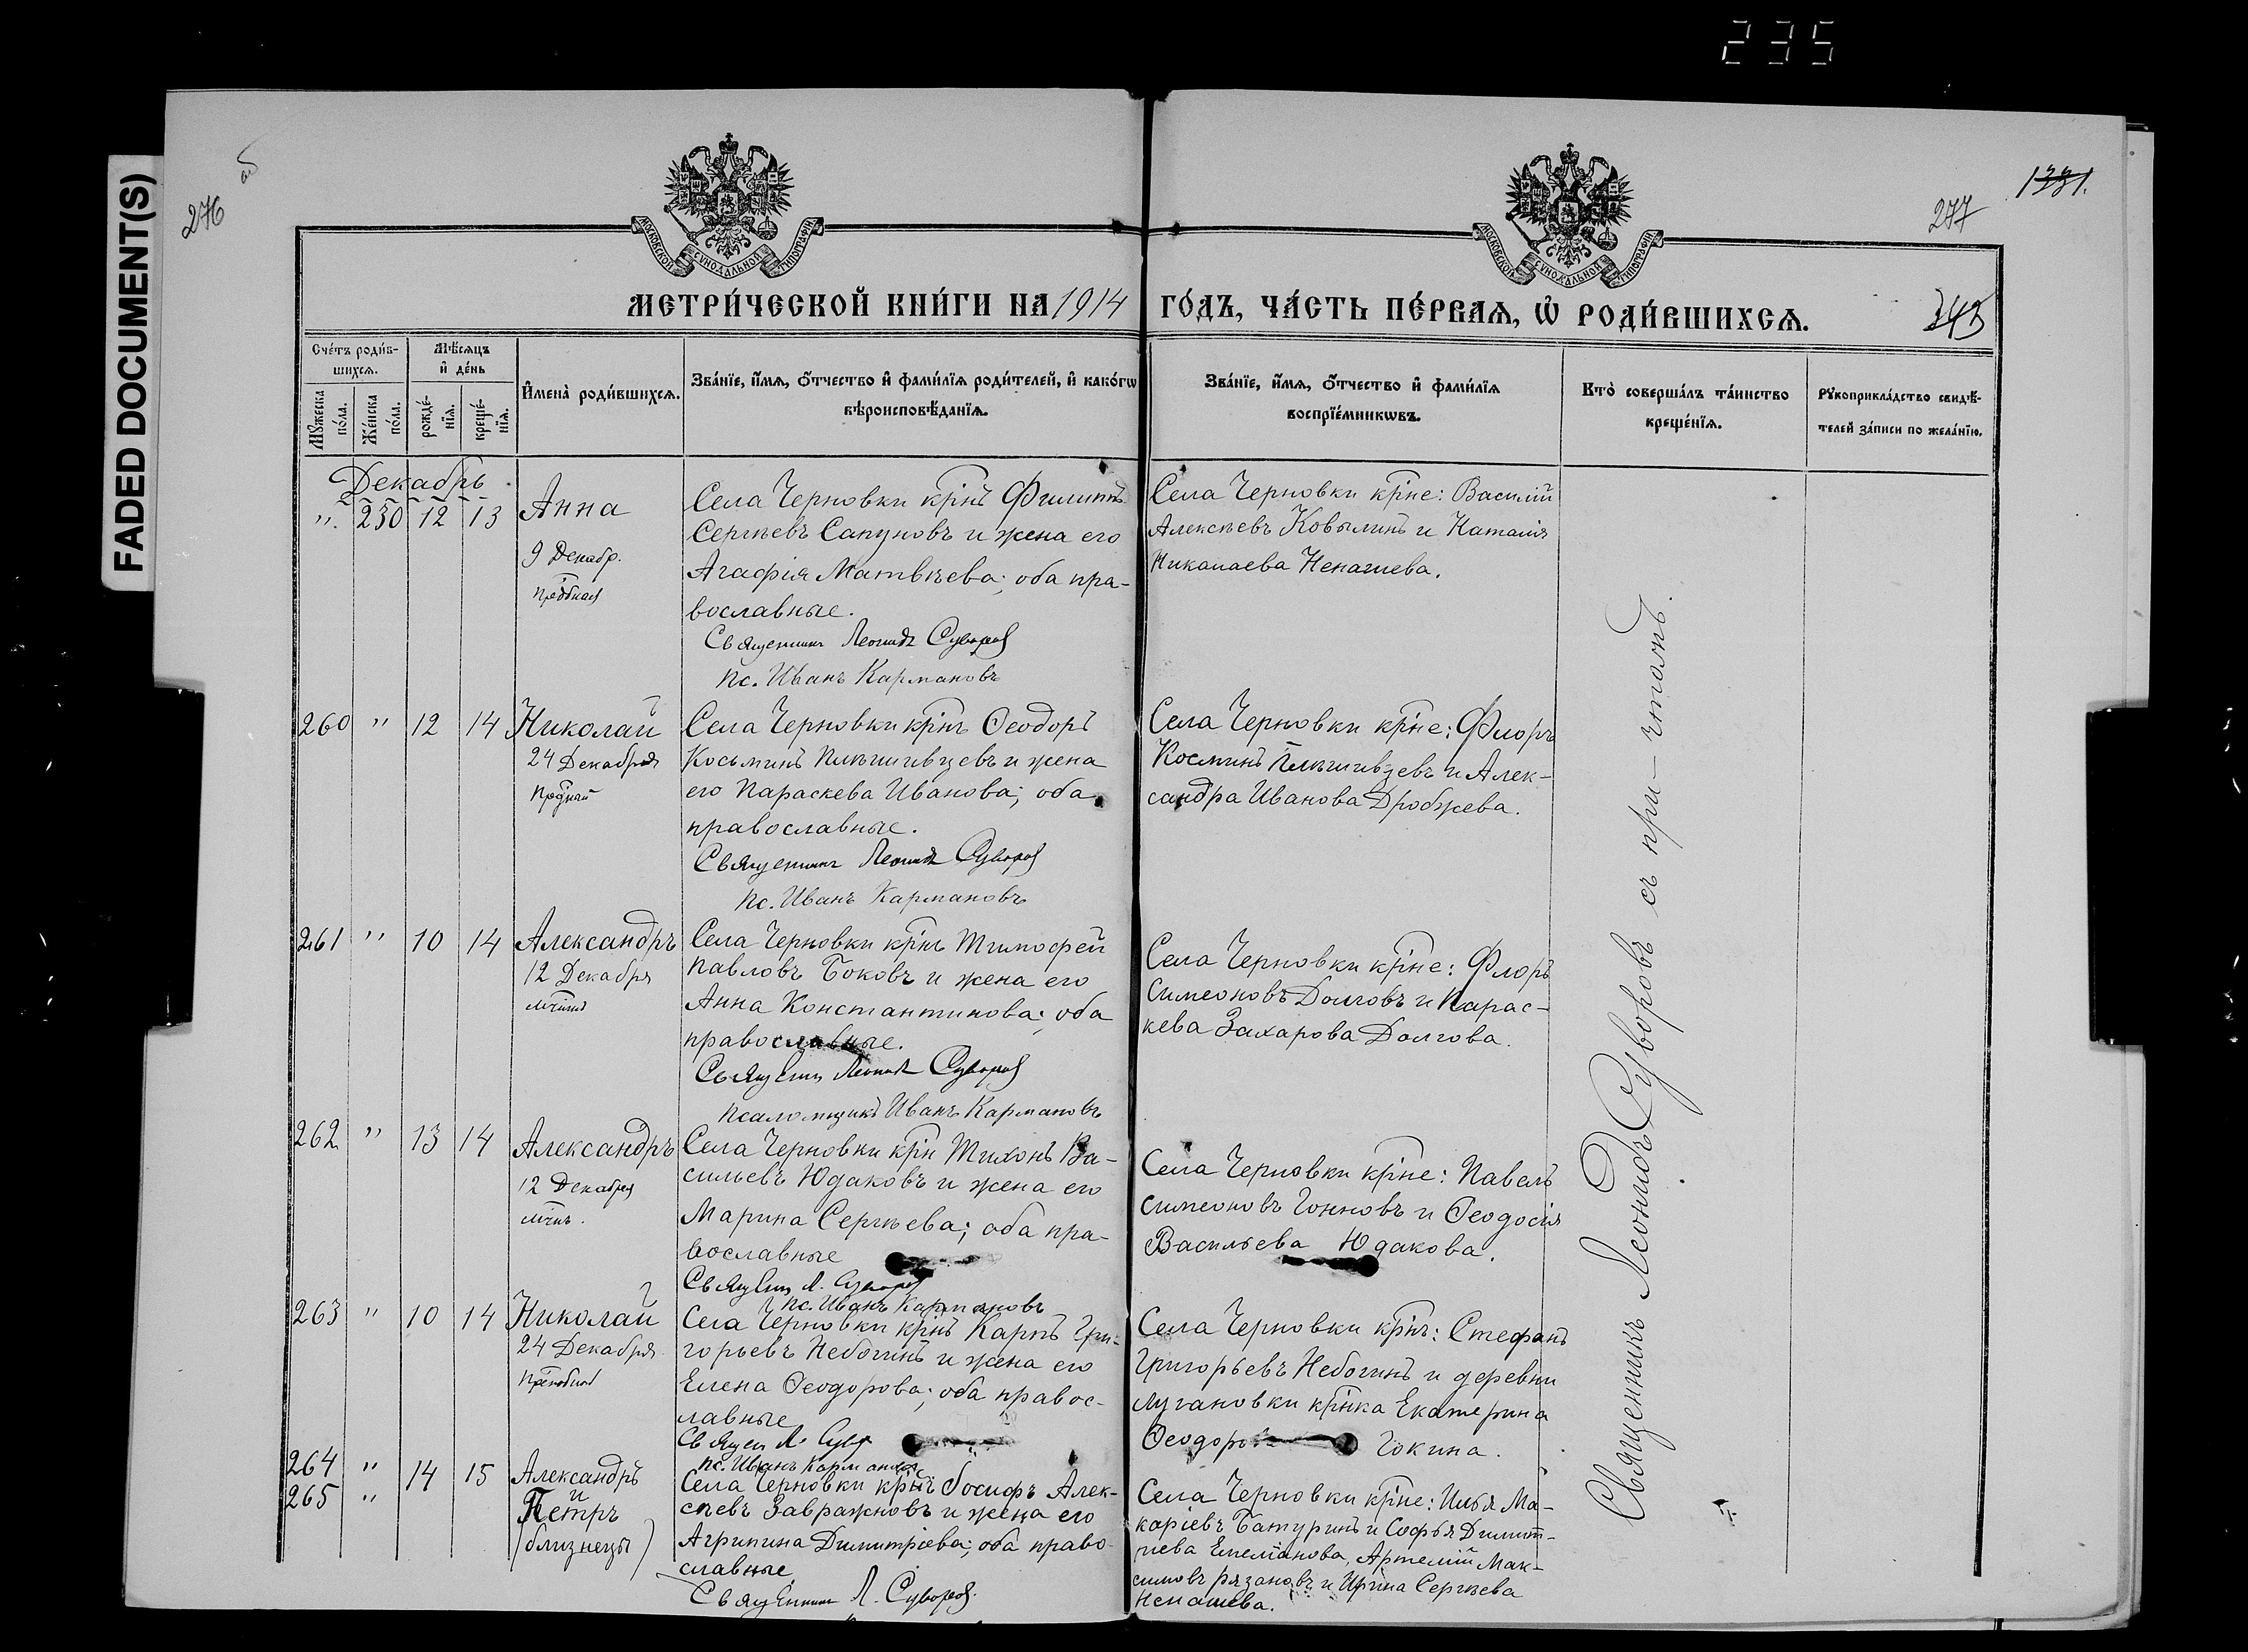 235
FADED DOCUMENT(S)
276
об
277
1331.
МОСКОВСКОЙ СѴНОДАЛЬНОЙ ТИПОГРАФІИ
МОСКОВСКОЙ СѴНОДАЛЬНОЙ ТИПОГРАФІИ
МЕТРИ́ЧЕСКОЙ КНИ́ГИ НА 1914 ГО́ДЪ, ЧА́СТЬ ПЕ́РВАѦ, Ѡ҆ РОДИ́ВШИХСѦ.
Сче́тъ роди́в-
шихсѧ.
Мѣ́сѧцъ
и҆ де́нь
Мꙋ́жеска
по́ла.
Же́нска
по́ла.
рожде́-
нїѧ.
креще́-
нїѧ.
И҆мена̀ роди́вшихсѧ.
Зва́нїе, и҆́мѧ, ѻ҆́тчество и҆ фами́лїѧ роди́телей, и҆ како́гѡ
вѣроисповѣ́данїѧ.
Зва́нїе, и҆́мѧ, ѻ҆́тчество и҆ фами́лїѧ
воспрїе́мникѡвъ.
Кто̀ соверша́лъ та́инство
креще́нїѧ.
Рꙋкоприкла́дство свидѣ́-
телей за́писи по жела́нїю.
Декабрь
" 230 12 13 Анна
9 Декабр.
Села Черновки крінъ Филиппъ
Сергѣевъ Сапуновъ и жена его
Агафія Матвѣева; оба пра-
вославные.
Священникъ Леонидъ Суворов
Пс. Иванъ Кармановъ
Села Черновки кріне: Василій
Алексѣевъ Ковылинъ и Наталія
Николаева Ненашева.
260 " 12 14 Николай
24 Декабря
Села Черновки крінъ Ѳеодоръ
Косьминъ Плѣшивцевъ и жена
его Параскева Иванова; оба
православные.
Священникъ Леонидъ Суворов
Пс. Иванъ Кармановъ
Села Черновки кріне: Флоръ
Косминъ Плѣшивцевъ и Алек-
сандра Иванова Дробжева.
261 " 10 14 Александръ
12 Декабря
Села Черновки крінъ Тимофей
Павловъ Боковъ и жена его
Анна Константинова; оба
православные.
Леонидъ Суворов
Псаломщикъ Иванъ Кармановъ
Села Черновки кріне: Флоръ
Симеоновъ Долговъ и Парас-
кева Захарова Долгова.
262 " 13 14 Александръ
12 Декабря
Села Черновки крін Тихонъ Ва-
сильевъ Юдаковъ и жена его
Марина Сергѣева; оба пра-
вославные
Л. Суворов
Пс. Иванъ Кармановъ
Села Черновки кріне: Павелъ
Симеоновъ и Ѳеодосія
Васильева Юдакова.
263 " 10 14 Николай
24 Декабря
Села Черновки крінъ Карпъ Гри-
горьевъ Небогинъ и жена его
Елена Ѳеодорова; оба правос-
лавные
Священ Л. Сув
Пс. Иванъ Кармановъ
Села Черновки крінъ: Стефанъ
Григорьевъ Небогинъ и деревни
Лугановки крінка Екатерина
Ѳеодорова Гокина.
264 " 14 15 Александръ
265 " и
Петръ
(близнецы)
Села Черновки крінъ Іосифъ Алек-
сѣевъ Завражновъ и жена его
Агрипина Димитріева; оба право-
славные
Священникъ Л. Суворов.
Села Черновки кріне: Илья Ма-
каріевъ Батуринъ и Софья Димит-
ріева Емеліанова, Артемій Мак-
симовъ Рязановъ и Ирина Сергѣева
Ненашева.
Священникъ Леонидъ Суворовъ съ при-чтомъ.